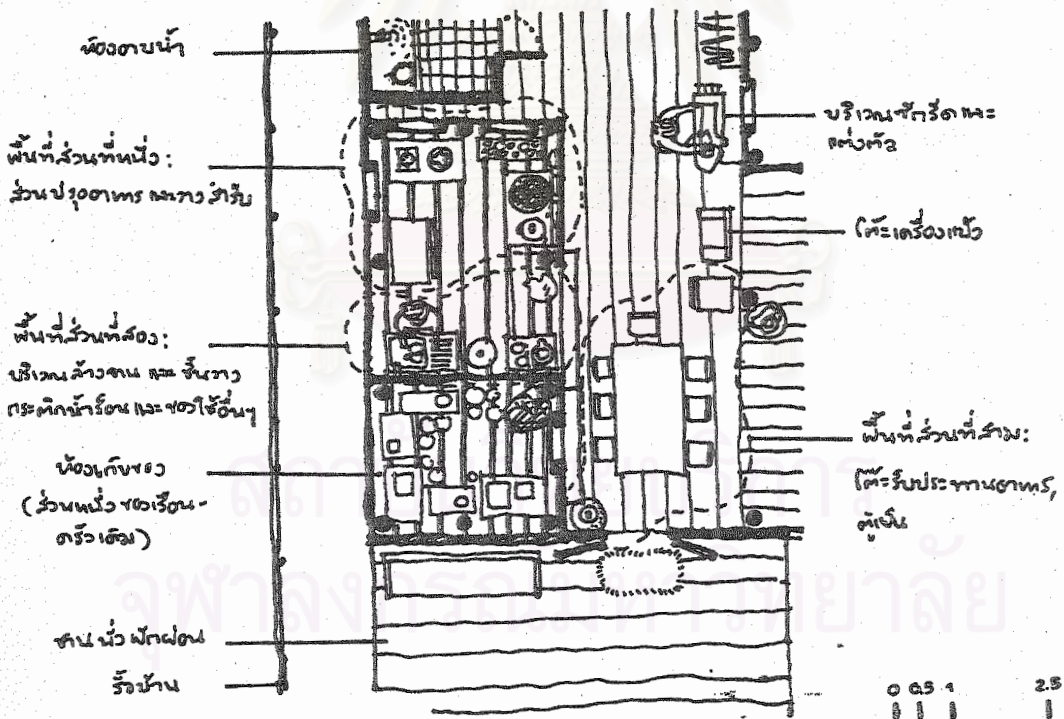 ห้องอาบน้ำ
พื้นที่ส่วนที่หนึ่ง:
ส่วนปรุงอาหาร และวางสำรับ
พื้นที่ส่วนที่สอง:
บริเวณล้างจาน และ ชั้นวาง
กระติกน้ำร้อน และของใช้อื่นๆ
ห้องเก็บของ
(ส่วนหนึ่งของเรือน-
ครัวเดิม)
ชานนั่งพักผ่อน
รั้วบ้าน
บริเวณซักรีดและ
แต่งตัว
โต๊ะเครื่องแป้ง
พื้นที่ส่วนที่สาม:
โต๊ะรับประทานอาหาร,
ตู้เย็น
สถาบันวิทยบริการ
จุฬาลงกรณ์มหาวิทยาลัย
0 0.5 1 2.5